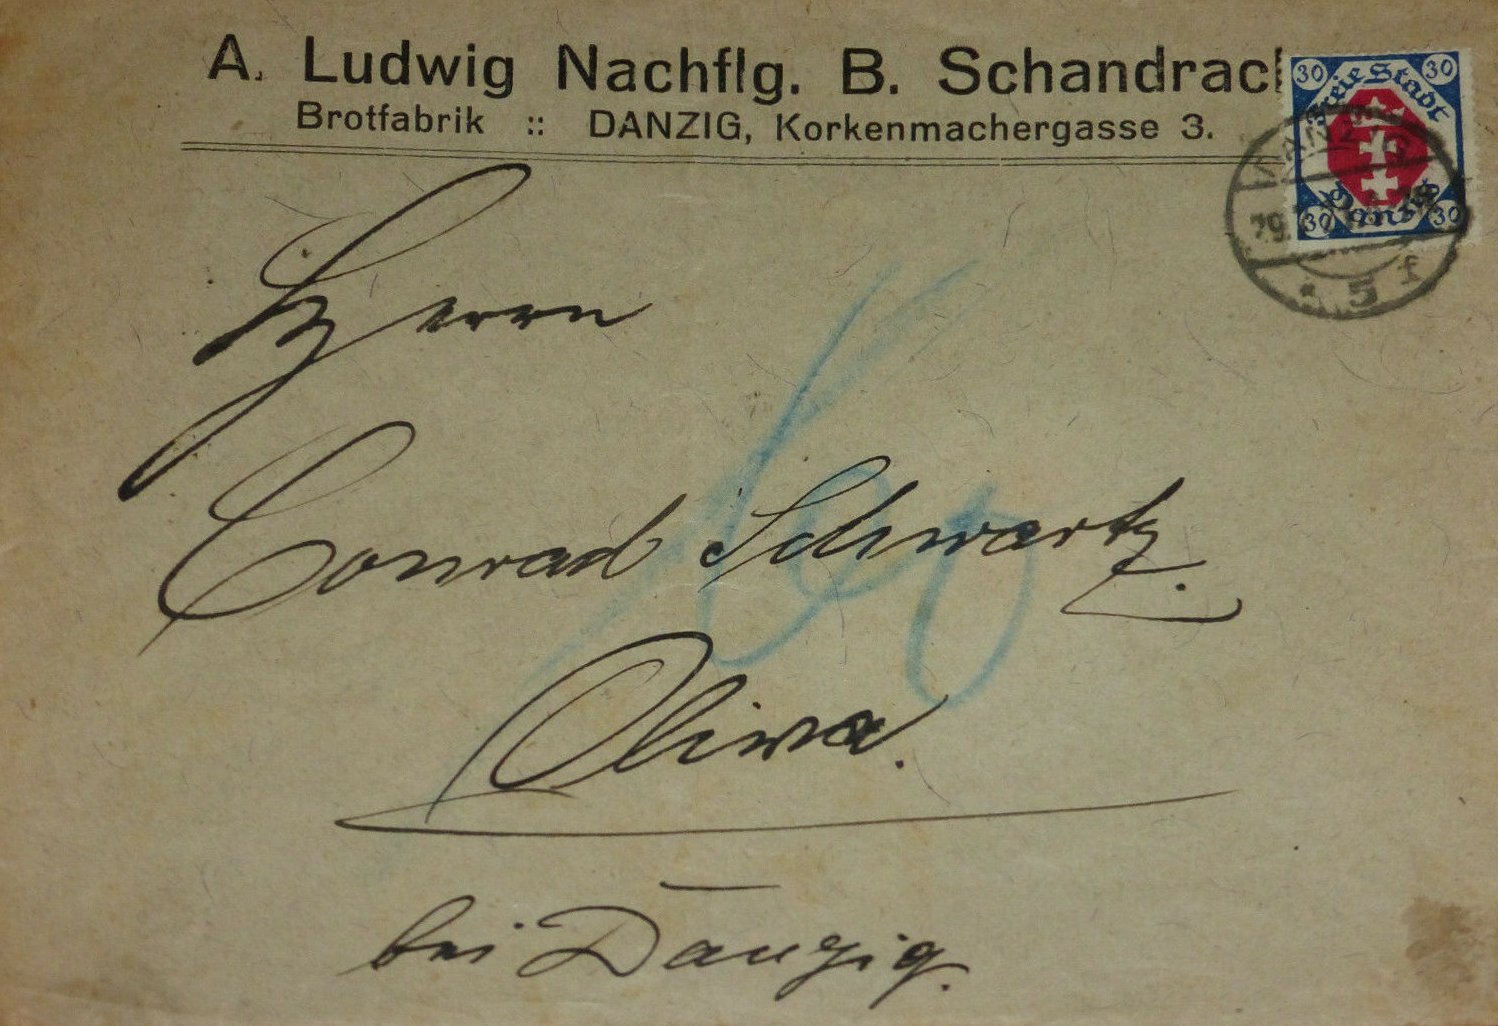 A. Ludwig Nachflg. B. Schandrach
Brotfabrik :: DANZIG, Korkenmachergasse 3.
30 30
Freie Stadt
Danzig
30 30
DANZIG
29.
* 5 f
Herrn
Conrad Schwartz.
Oliwa.
bei Danzig.